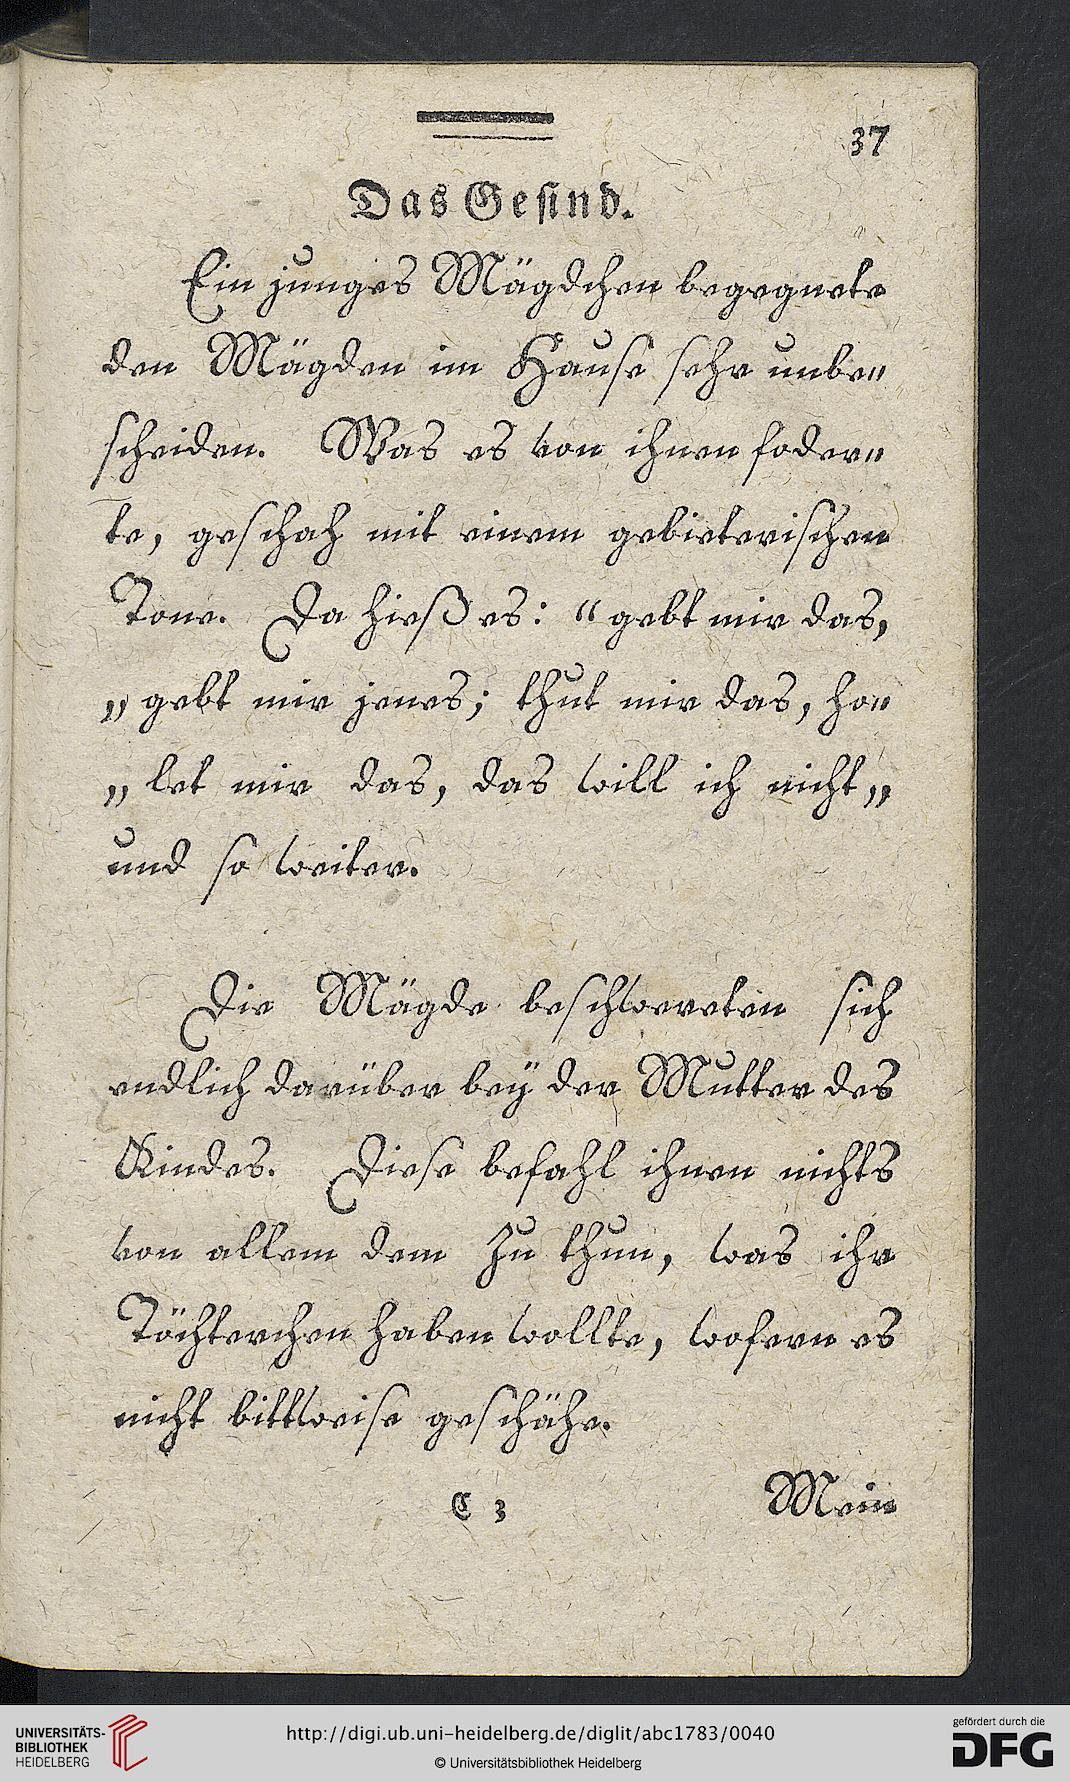 37
Das Gesind.
Ein junges Mägdchen begegnete
den Mägden im Hause sehr unbe=
scheiden. Was es von ihnen foder=
te, geschah mit einem gebieterischen
Tone. Da hieß es: “gebt mir das,
„gebt mir jenes; thut mir das, ho=
„let mir das, das will ich nicht„
und so weiter.
Die Mägde beschwereten sich
endlich darüber bey der Mutter des
Kindes. Diese befahl ihnen nichts
von allem dem zu thun, was ihr
Töchterchen haben wollte, wofern es
nicht bittweise geschähe.
C 3 Mein
UNIVERSITÄTS-
BIBLIOTHEK
HEIDELBERG
http://digi.ub.uni-heidelberg.de/diglit/abc1783/0040
© Universitätsbibliothek Heidelberg
gefördert durch die
DFG